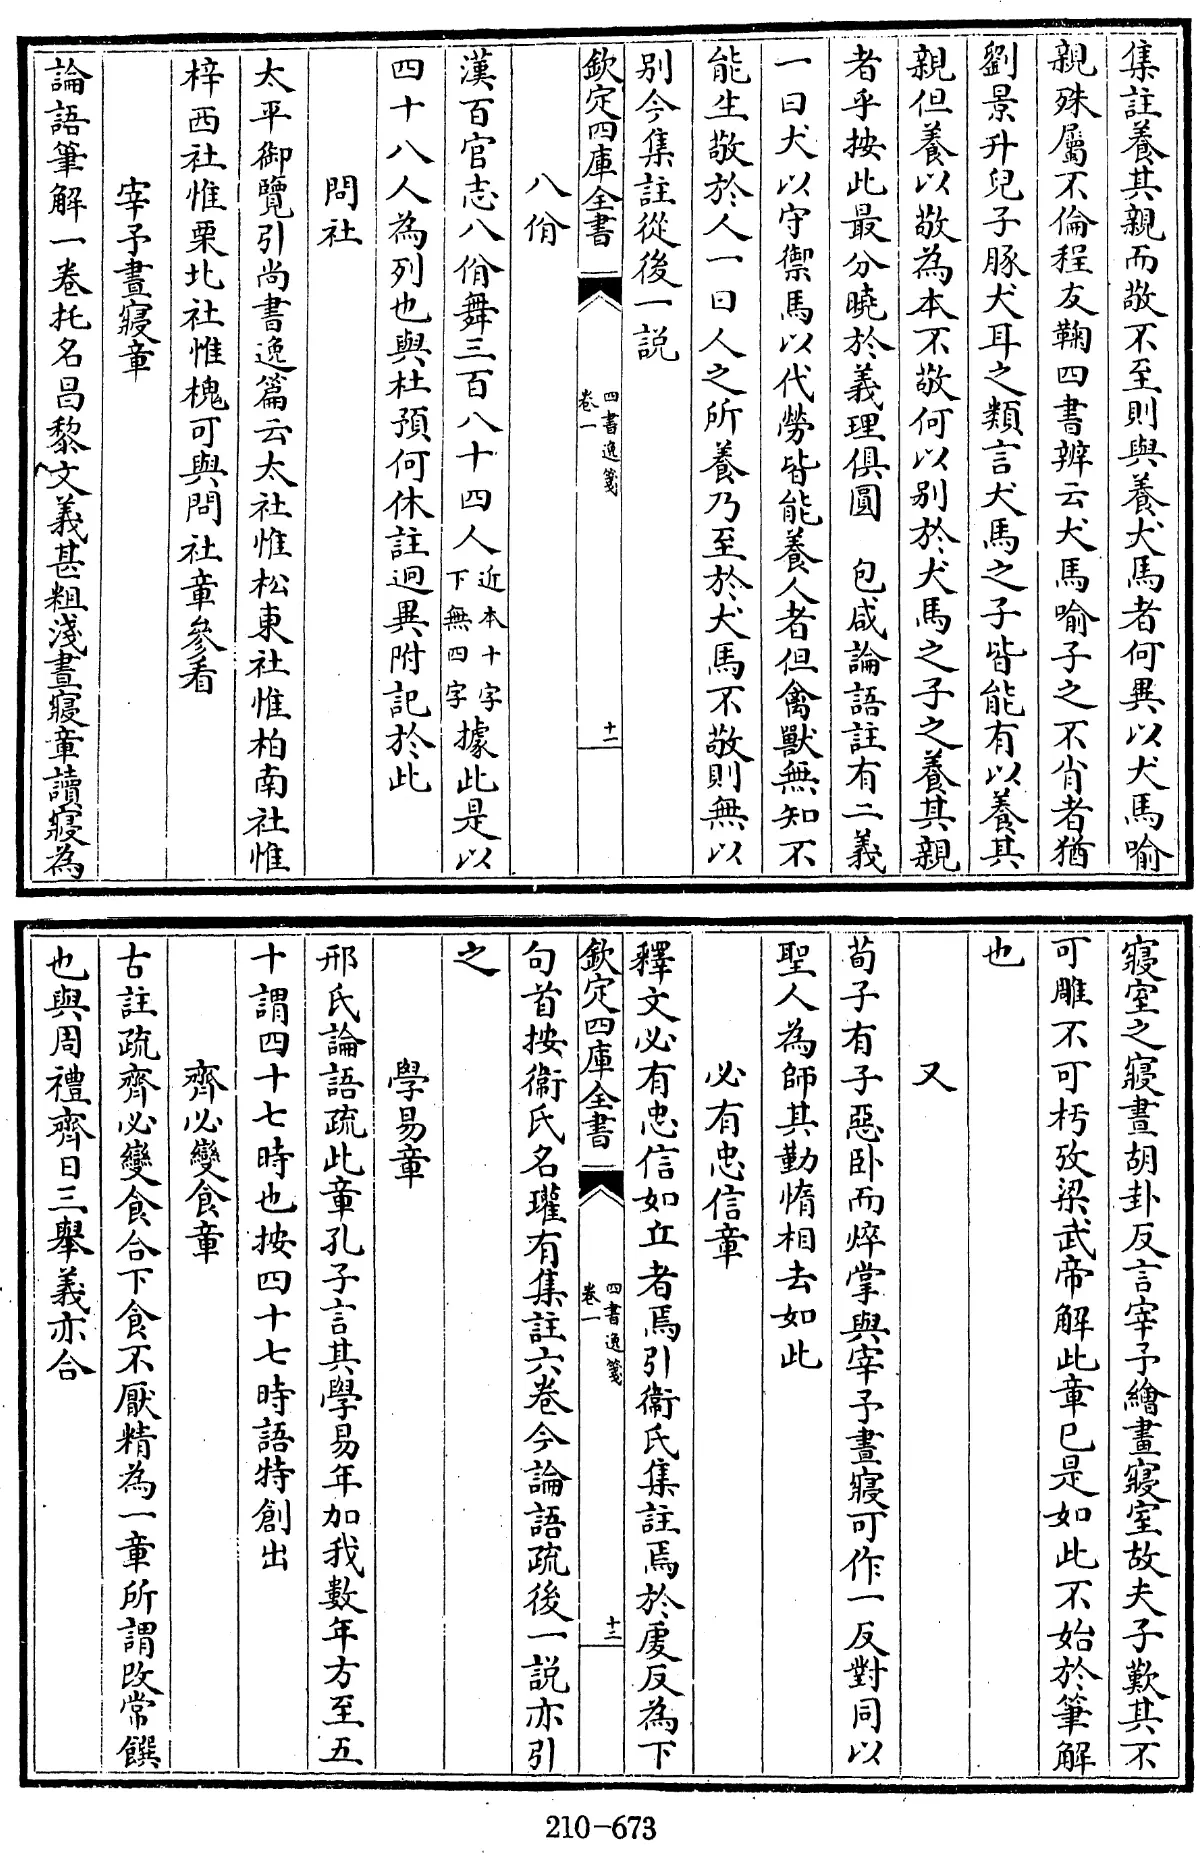 集註養其親而敬不至則與養犬馬者何異以犬馬喻
親殊屬不倫程友鞠四書辨云犬馬喻子之不肖者猶
劉景升兒子豚犬耳之類言犬馬之子皆能有以養其
親但養以敬為本不敬何以别於犬馬之子之養其親
者乎按此最分曉於義理俱圓　包咸論語註有二義
一曰犬以守禦馬以代勞皆能養人者但禽獸無知不
能生敬於人一曰人之所養乃至於犬馬不敬則無以
别今集註從後一説
欽定四庫全書
四書逸箋
卷一
十一
八佾
漢百官志八佾舞三百八十四人近本十字下無四字據此是以
四十八人為列也與杜預何休註迥異附記於此
問社
太平御覽引尚書逸篇云太社惟松東社惟柏南社惟
梓西社惟栗北社惟槐可與問社章參看
宰予晝寢章
論語筆解一卷托名昌黎文義甚粗淺晝寢章讀寢為
寢室之寢晝胡卦反言宰予繪畫寢室故夫子歎其不
可雕不可朽攷梁武帝解此章已是如此不始於筆解
也
又
荀子有子惡卧而焠掌與宰予晝寢可作一反對同以
聖人為師其勤惰相去如此
必有忠信章
釋文必有忠信如丘者焉引衞氏集註焉於虔反為下
欽定四庫全書
四書逸箋
卷一
十二
句首按衞氏名瓘有集註六卷今論語疏後一説亦引
之
學易章
邢氏論語疏此章孔子言其學易年加我數年方至五
十謂四十七時也按四十七時語特創出
齊必變食章
古註疏齊必變食合下食不厭精為一章所謂改常饌
也與周禮齊日三舉義亦合
210-673